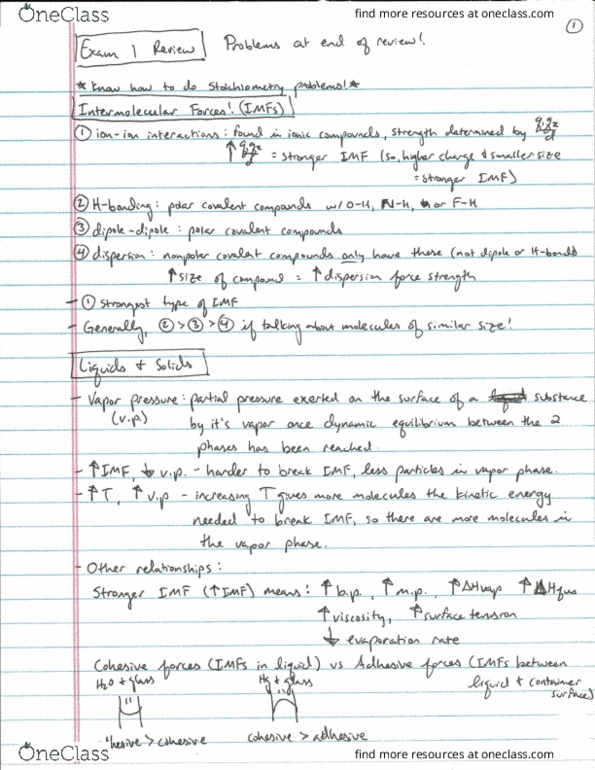 OneClass find more resources at oneclass.com
1
Exam 1 Review Problems at end of review!
*Know how to do Stoichiometry problems!*
Intermolecular Forces! (IMFs)
① ion-ion interactions: found in ionic compounds, strength determined by q₁q₂/d
↑ q₁q₂/d = stronger IMF (so, higher charge & smaller size
= stronger IMF)
② H-bonding: polar covalent compounds w/ O-H, N-H, or F-H
③ dipole-dipole: polar covalent compounds
④ dispersion: nonpolar covalent compounds only have these (not dipole or H-bonds)
↑ size of compound = ↑ dispersion force strength
- ① strongest type of IMF
- Generally, ② > ③ > ④ if talking about molecules of similar size!
Liquids & Solids
- Vapor pressure: partial pressure exerted on the surface of a substance
(v.p.) by it's vapor once dynamic equilibrium between the 2
phases has been reached.
- ↑IMF, ↓ v.p. - harder to break IMF, less particles in vapor phase.
- ↑T, ↑ v.p - increasing T gives more molecules the kinetic energy
needed to break IMF, so there are more molecules in
the vapor phase.
- Other relationships:
Stronger IMF (↑IMF) means: ↑ b.p., ↑ m.p., ↑ ΔHvap ↑ ΔHfus
↑ viscosity, ↑ surface tension
↓ evaporation rate
Cohesive forces (IMFs in liquid) vs Adhesive forces (IMFs between
liquid & container
surface)
H₂O + glass Hg + glass
hesive > cohesive cohesive > adhesive
OneClass find more resources at oneclass.com